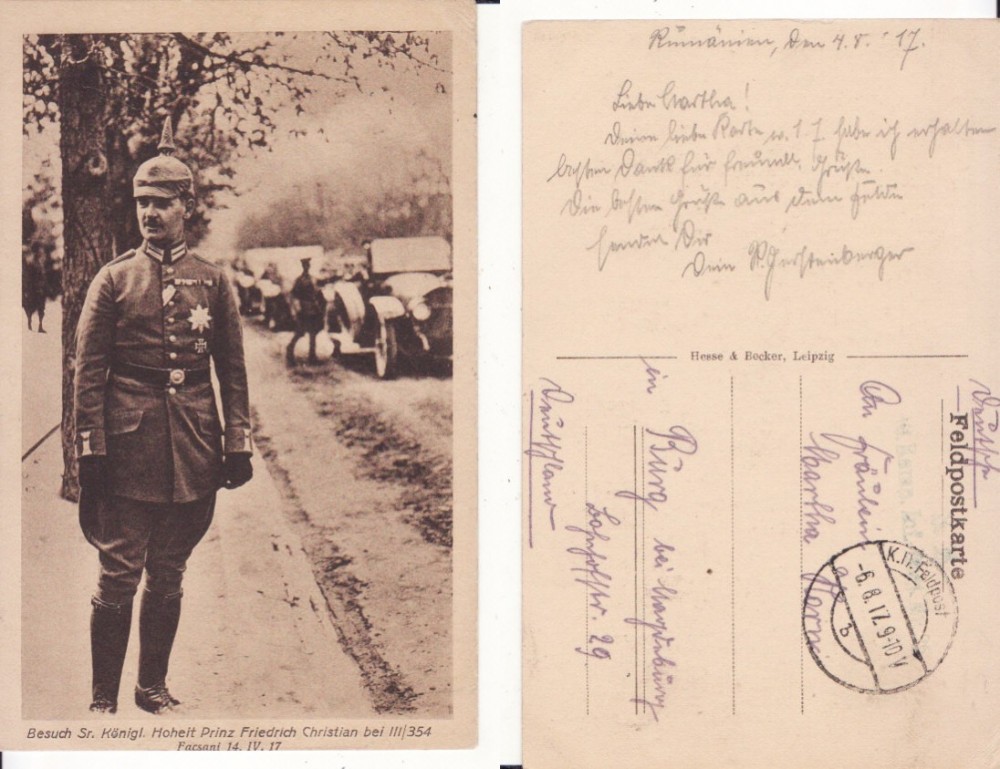 Besuch Sr. Königl. Hoheit Prinz Friedrich Christian bei III/354
Facsani 14. IV. 17
Rumänien, den 4. 8. 17.
Liebe Martha!
Deine liebe Karte v. 1 7 habe ich erhalten
besten Dank für freundl. Grüße.
Die besten Grüße aus dem Felde
sendet Dir
Dein Gerstenberger
Hesse & Becker, Leipzig
Feldpostkarte
K.D. Feldpost
-6.8.17. 9-10 V
b
An Fräulein
Martha
in
Burg bei Magdeburg
Bahnhofstr. 29
Deutschland